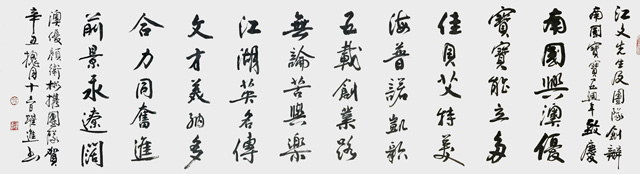 江文先生及團隊創辦
南國寶寶五周年致慶
南國興澳優
寶寶能立多
佳貝艾特美
海普諾凱歌
五載創業路
無論苦與樂
江湖英名傳
文才美納多
合力同奮進
前景永遼闊
澳優顏衛彬攜團隊賀
辛丑
月十六日躍進書